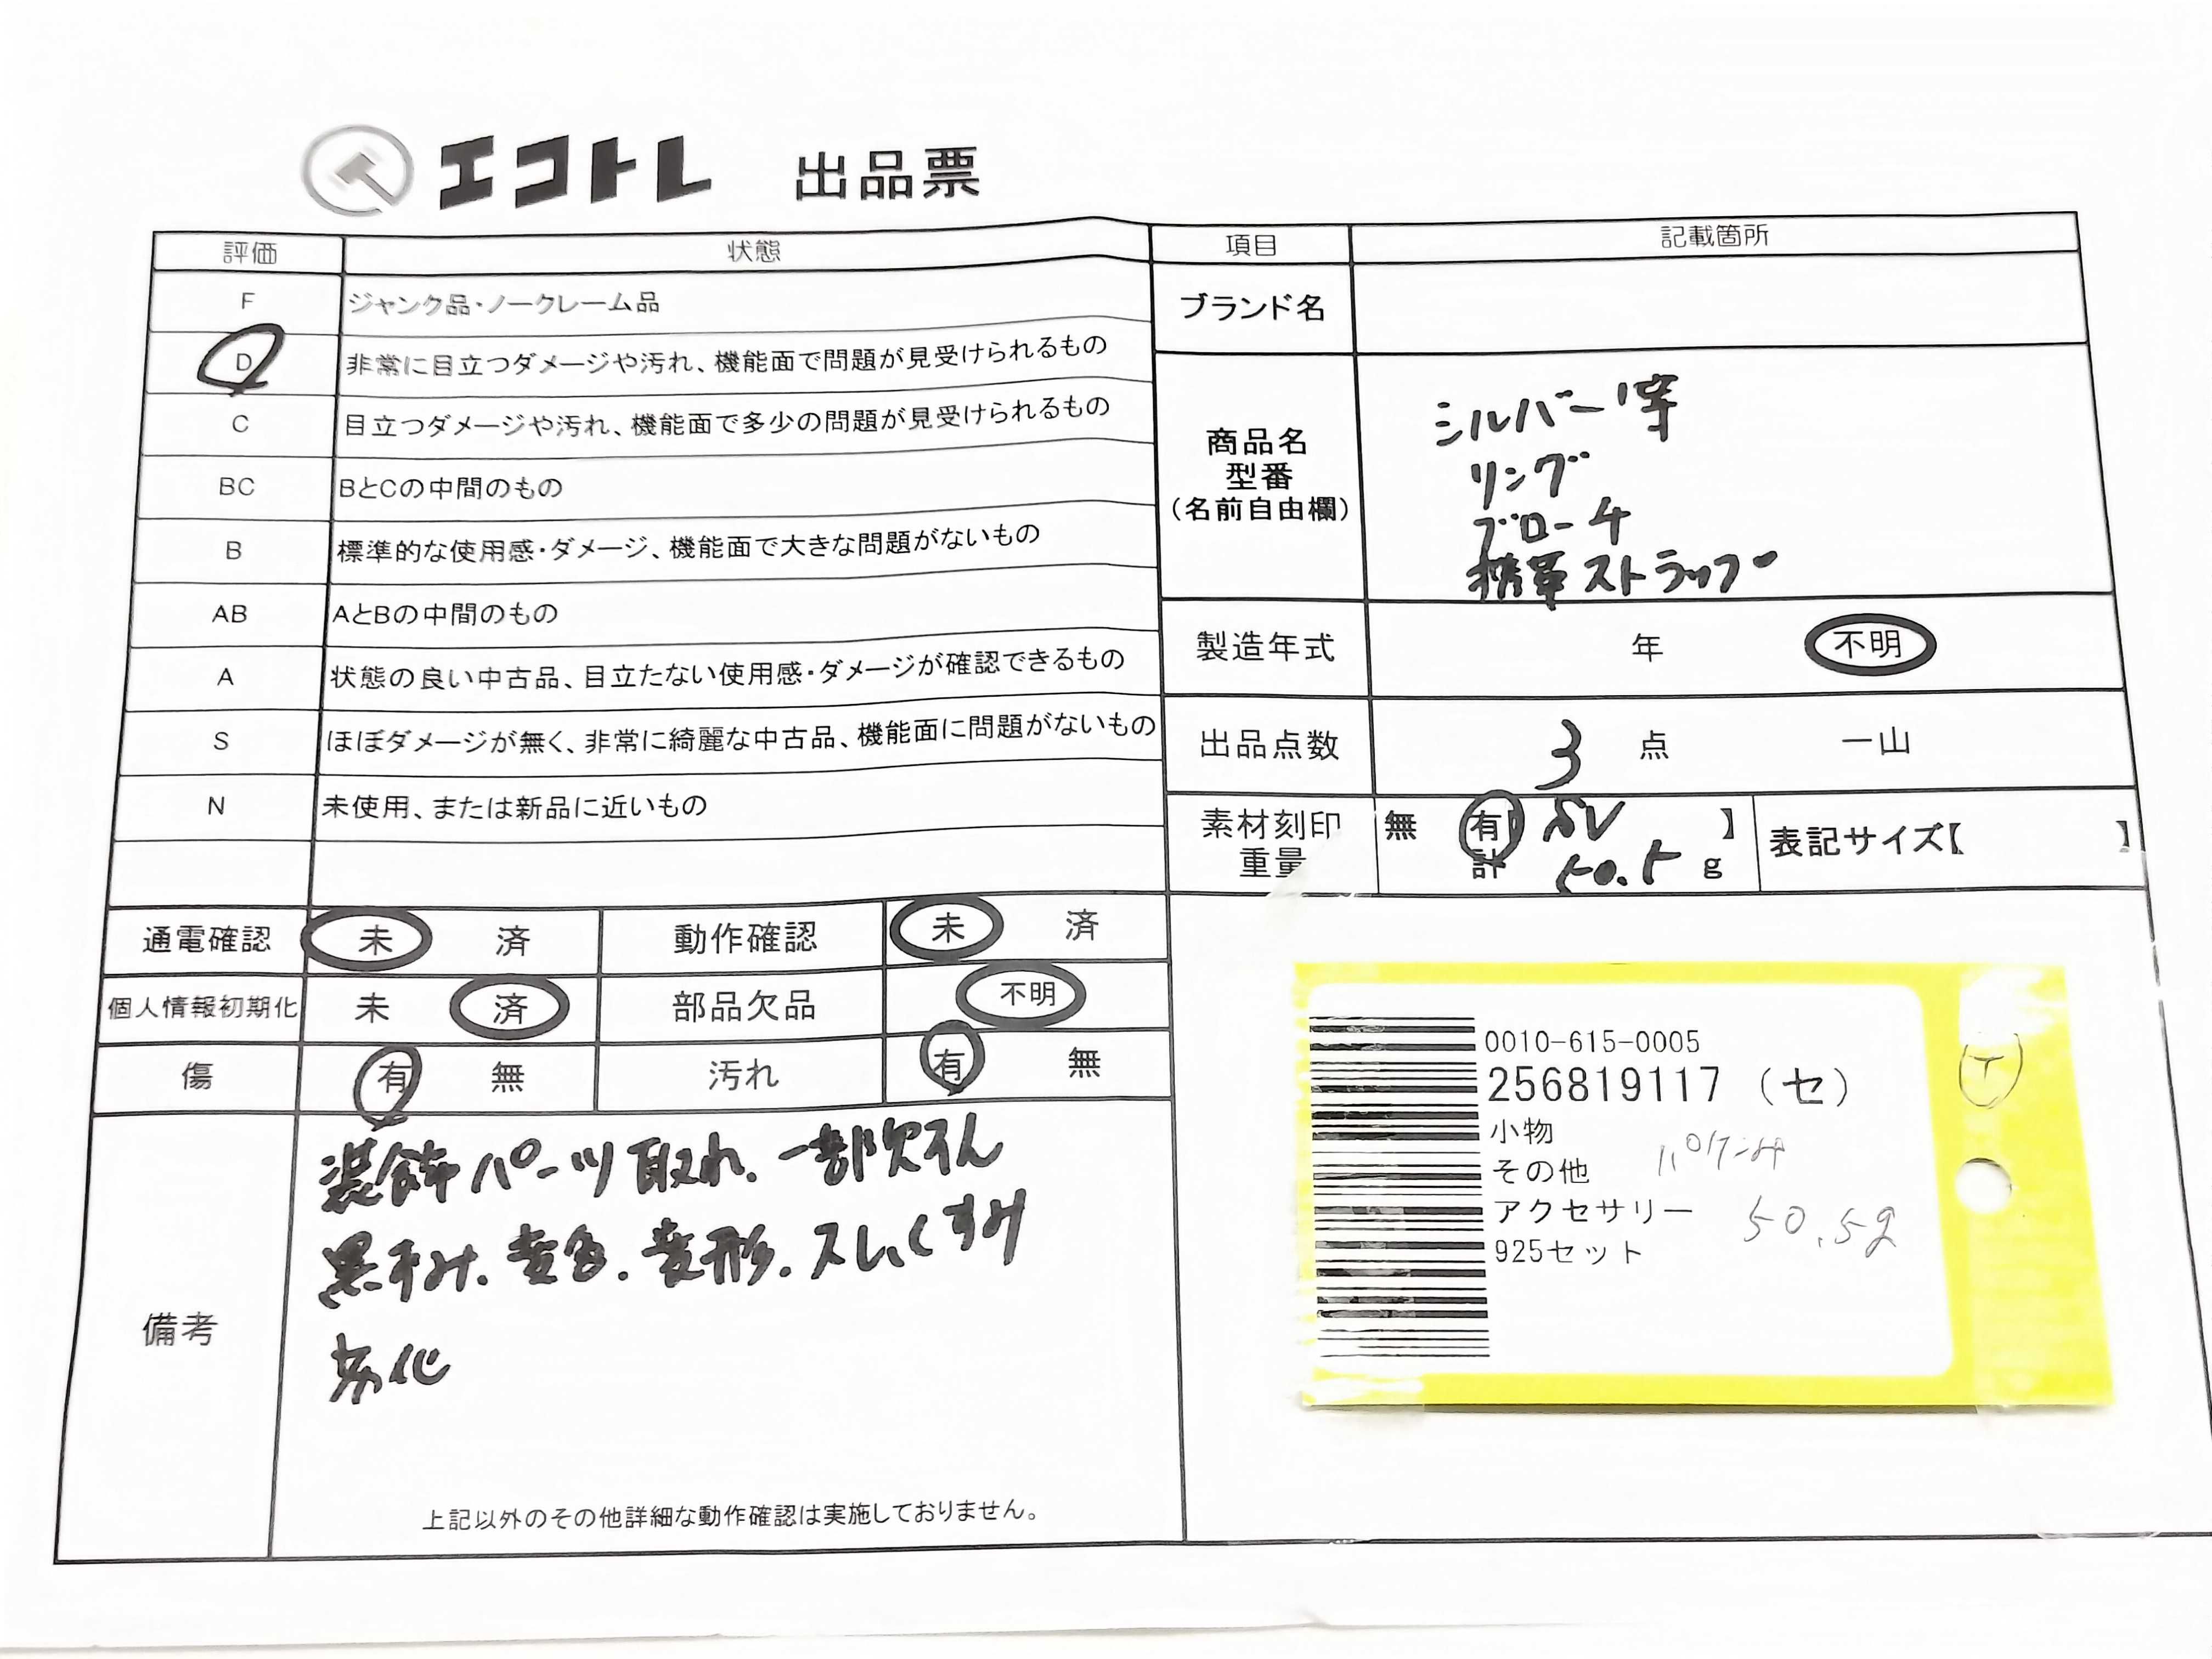 エコトレ 出品票
評価 状態
F ジャンク品・ノークレーム品
D 非常に目立つダメージや汚れ、機能面で問題が見受けられるもの
C 目立つダメージや汚れ、機能面で多少の問題が見受けられるもの
BC BとCの中間のもの
B 標準的な使用感・ダメージ、機能面で大きな問題がないもの
AB AとBの中間のもの
A 状態の良い中古品、目立たない使用感・ダメージが確認できるもの
S ほぼダメージが無く、非常に綺麗な中古品、機能面に問題がないもの
N 未使用、または新品に近いもの
項目 記載箇所
ブランド名
商品名
型番
(名前自由欄)
シルバー等
リング
ブローチ
携帯ストラップ
製造年式 年 不明
出品点数 3 点 一山
素材刻印 無 有 SV 】
重量 計 50.5 g
表記サイズ【 】
通電確認 未 済 動作確認 未 済
個人情報初期化 未 済 部品欠品 不明
傷 有 無 汚れ 有 無
備考
装飾パーツ取れ、一部欠そん
黒ずみ、変色、変形、スレ、くすみ
劣化
上記以外のその他詳細な動作確認は実施しておりません。
0010-615-0005
256819117 (セ)
小物
その他
アクセサリー 50.5g
925セット